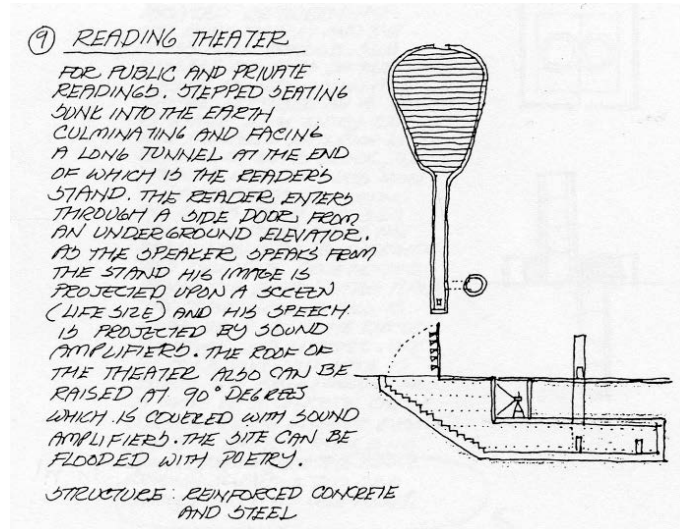 9 READING THEATER
FOR PUBLIC AND PRIVATE
READINGS. STEPPED SEATING
SUNK INTO THE EARTH
CULMINATING AND FACING
A LONG TUNNEL AT THE END
OF WHICH IS THE READER'S
STAND. THE READER ENTERS
THROUGH A SIDE DOOR FROM
AN UNDERGROUND ELEVATOR.
AS THE SPEAKER SPEAKS FROM
THE STAND HIS IMAGE IS
PROJECTED UPON A SCREEN
(LIFE SIZE) AND HIS SPEECH
IS PROJECTED BY SOUND
AMPLIFIERS. THE ROOF OF
THE THEATER ALSO CAN BE
RAISED AT 90° DEGREES
WHICH IS COVERED WITH SOUND
AMPLIFIERS. THE SITE CAN BE
FLOODED WITH POETRY.
STRUCTURE: REINFORCED CONCRETE
AND STEEL